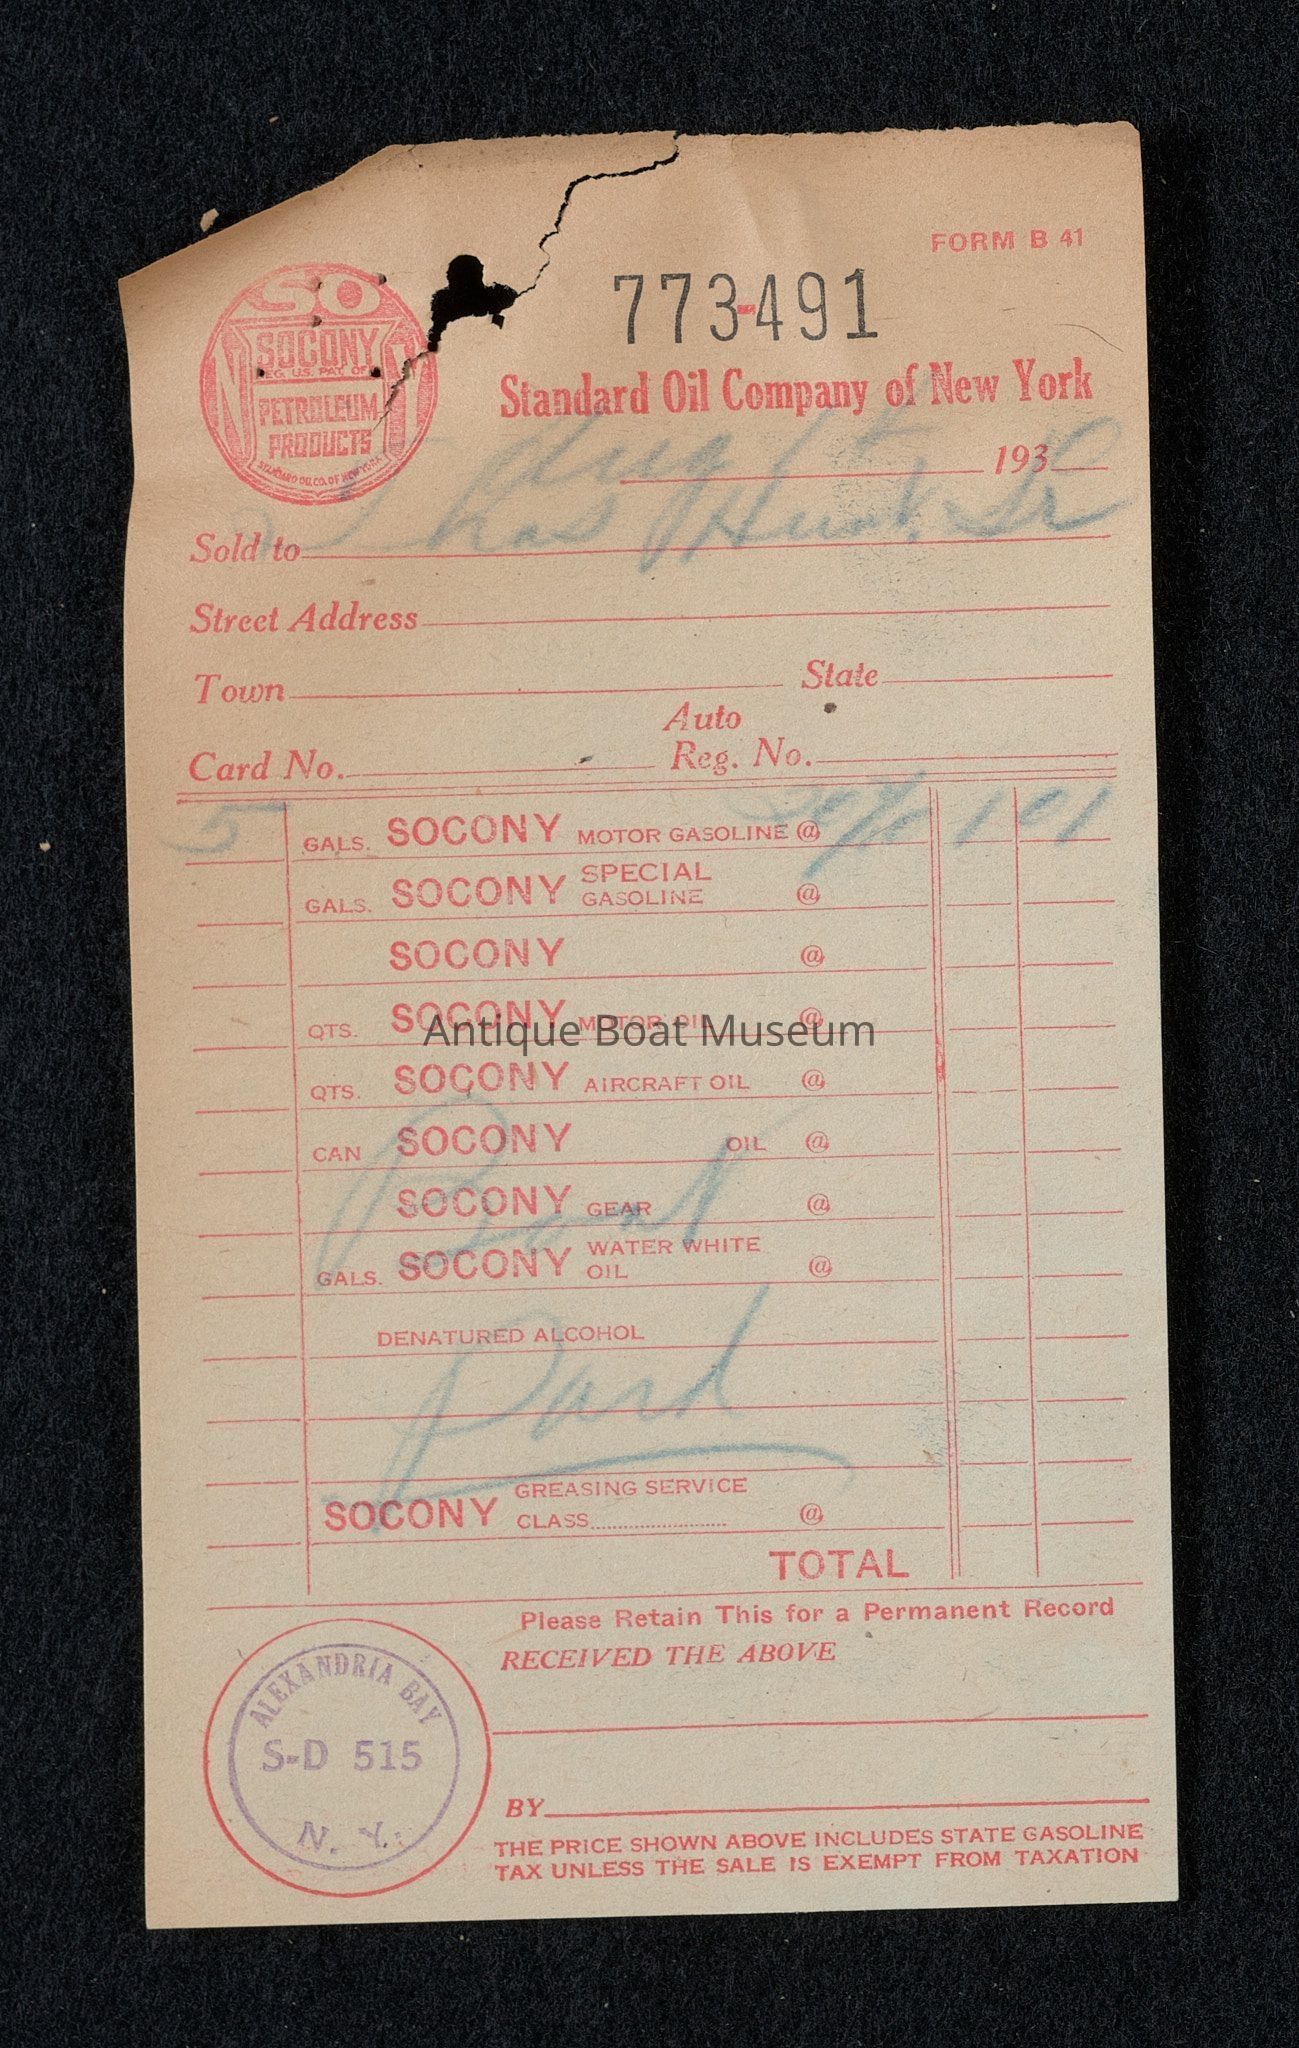 FORM B 41
773-491
SO
SOCONY
REG. U.S. PAT. OFF.
PETROLEUM
PRODUCTS
STANDARD OIL CO. OF NEW YORK
NY
Standard Oil Company of New York
Aug 193
Sold to Thas Hunt. Sr
Street Address
Town State
Card No. Auto Reg. No.
5 GALS. SOCONY MOTOR GASOLINE @ 1 01
GALS. SOCONY SPECIAL GASOLINE @
SOCONY @
QTS. SOCONY MOTOR OIL @
Antique Boat Museum
QTS. SOCONY AIRCRAFT OIL @
CAN SOCONY OIL @
SOCONY GEAR @
GALS. SOCONY WATER WHITE OIL @
Boat
DENATURED ALCOHOL
Paid
SOCONY GREASING SERVICE CLASS @
TOTAL
Please Retain This for a Permanent Record
RECEIVED THE ABOVE
ALEXANDRIA BAY
S-D 515
N. Y.
BY
THE PRICE SHOWN ABOVE INCLUDES STATE GASOLINE
TAX UNLESS THE SALE IS EXEMPT FROM TAXATION